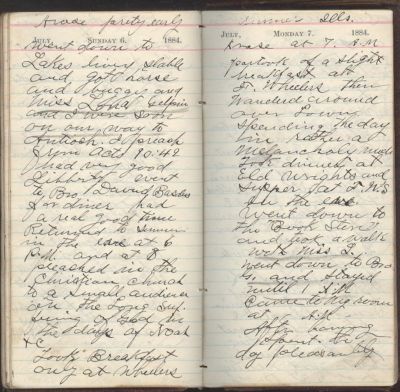 Arose pretty early
JULY, SUNDAY 6, 1884.
Went down to
Lakes livery stable
and got horse
and buggy and
Miss Lona
and I were soon
on our way to
Antioch. I preach
from Acts 10:42
had very good
Liberty went
to Bro David
for dinner had
a real good time
Returned to
in the eve at 6
P.M. and at 8
preached in the
Christian church
to a small audience
on the Long Suf
fering of God in
the days of Noah
&C.
Took Breakfast
only at Wheelers
Sumner Ills.
JULY, MONDAY 7, 1884.
Arose at 7. A.M
partook of a slight
breakfast at
T. Wheelers then
wandered around
over town
Spending the day
in rather a
Melancholy mood
Took dinner at
Eld Wrights and
Supper at T. W's
In the eve
Went down to
the Book Store
and took a walk
with Miss L.
Went down to Bro
and stayed
until
Came to my room
at
After having
spent the
day pleasantly